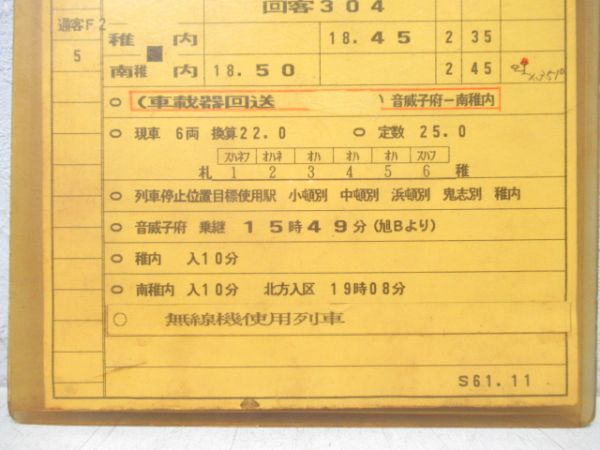 回客304
通客F2
稚内 18.45 2 35
5
南稚内 18.50 2 45
○ (車載器回送 )音威子府ー南稚内
○ 現車 6両 換算22.0 ○ 定数 25.0
スハネフ オハネ オハ オハ オハ スハフ
札 1 2 3 4 5 6 稚
○ 列車停止位置目標使用駅 小頓別 中頓別 浜頓別 鬼志別 稚内
○ 音威子府 乗継 15時49分(旭Bより)
○ 稚内 入10分
○ 南稚内 入10分 北方入区 19時08分
○ 無線機使用列車
S61.11